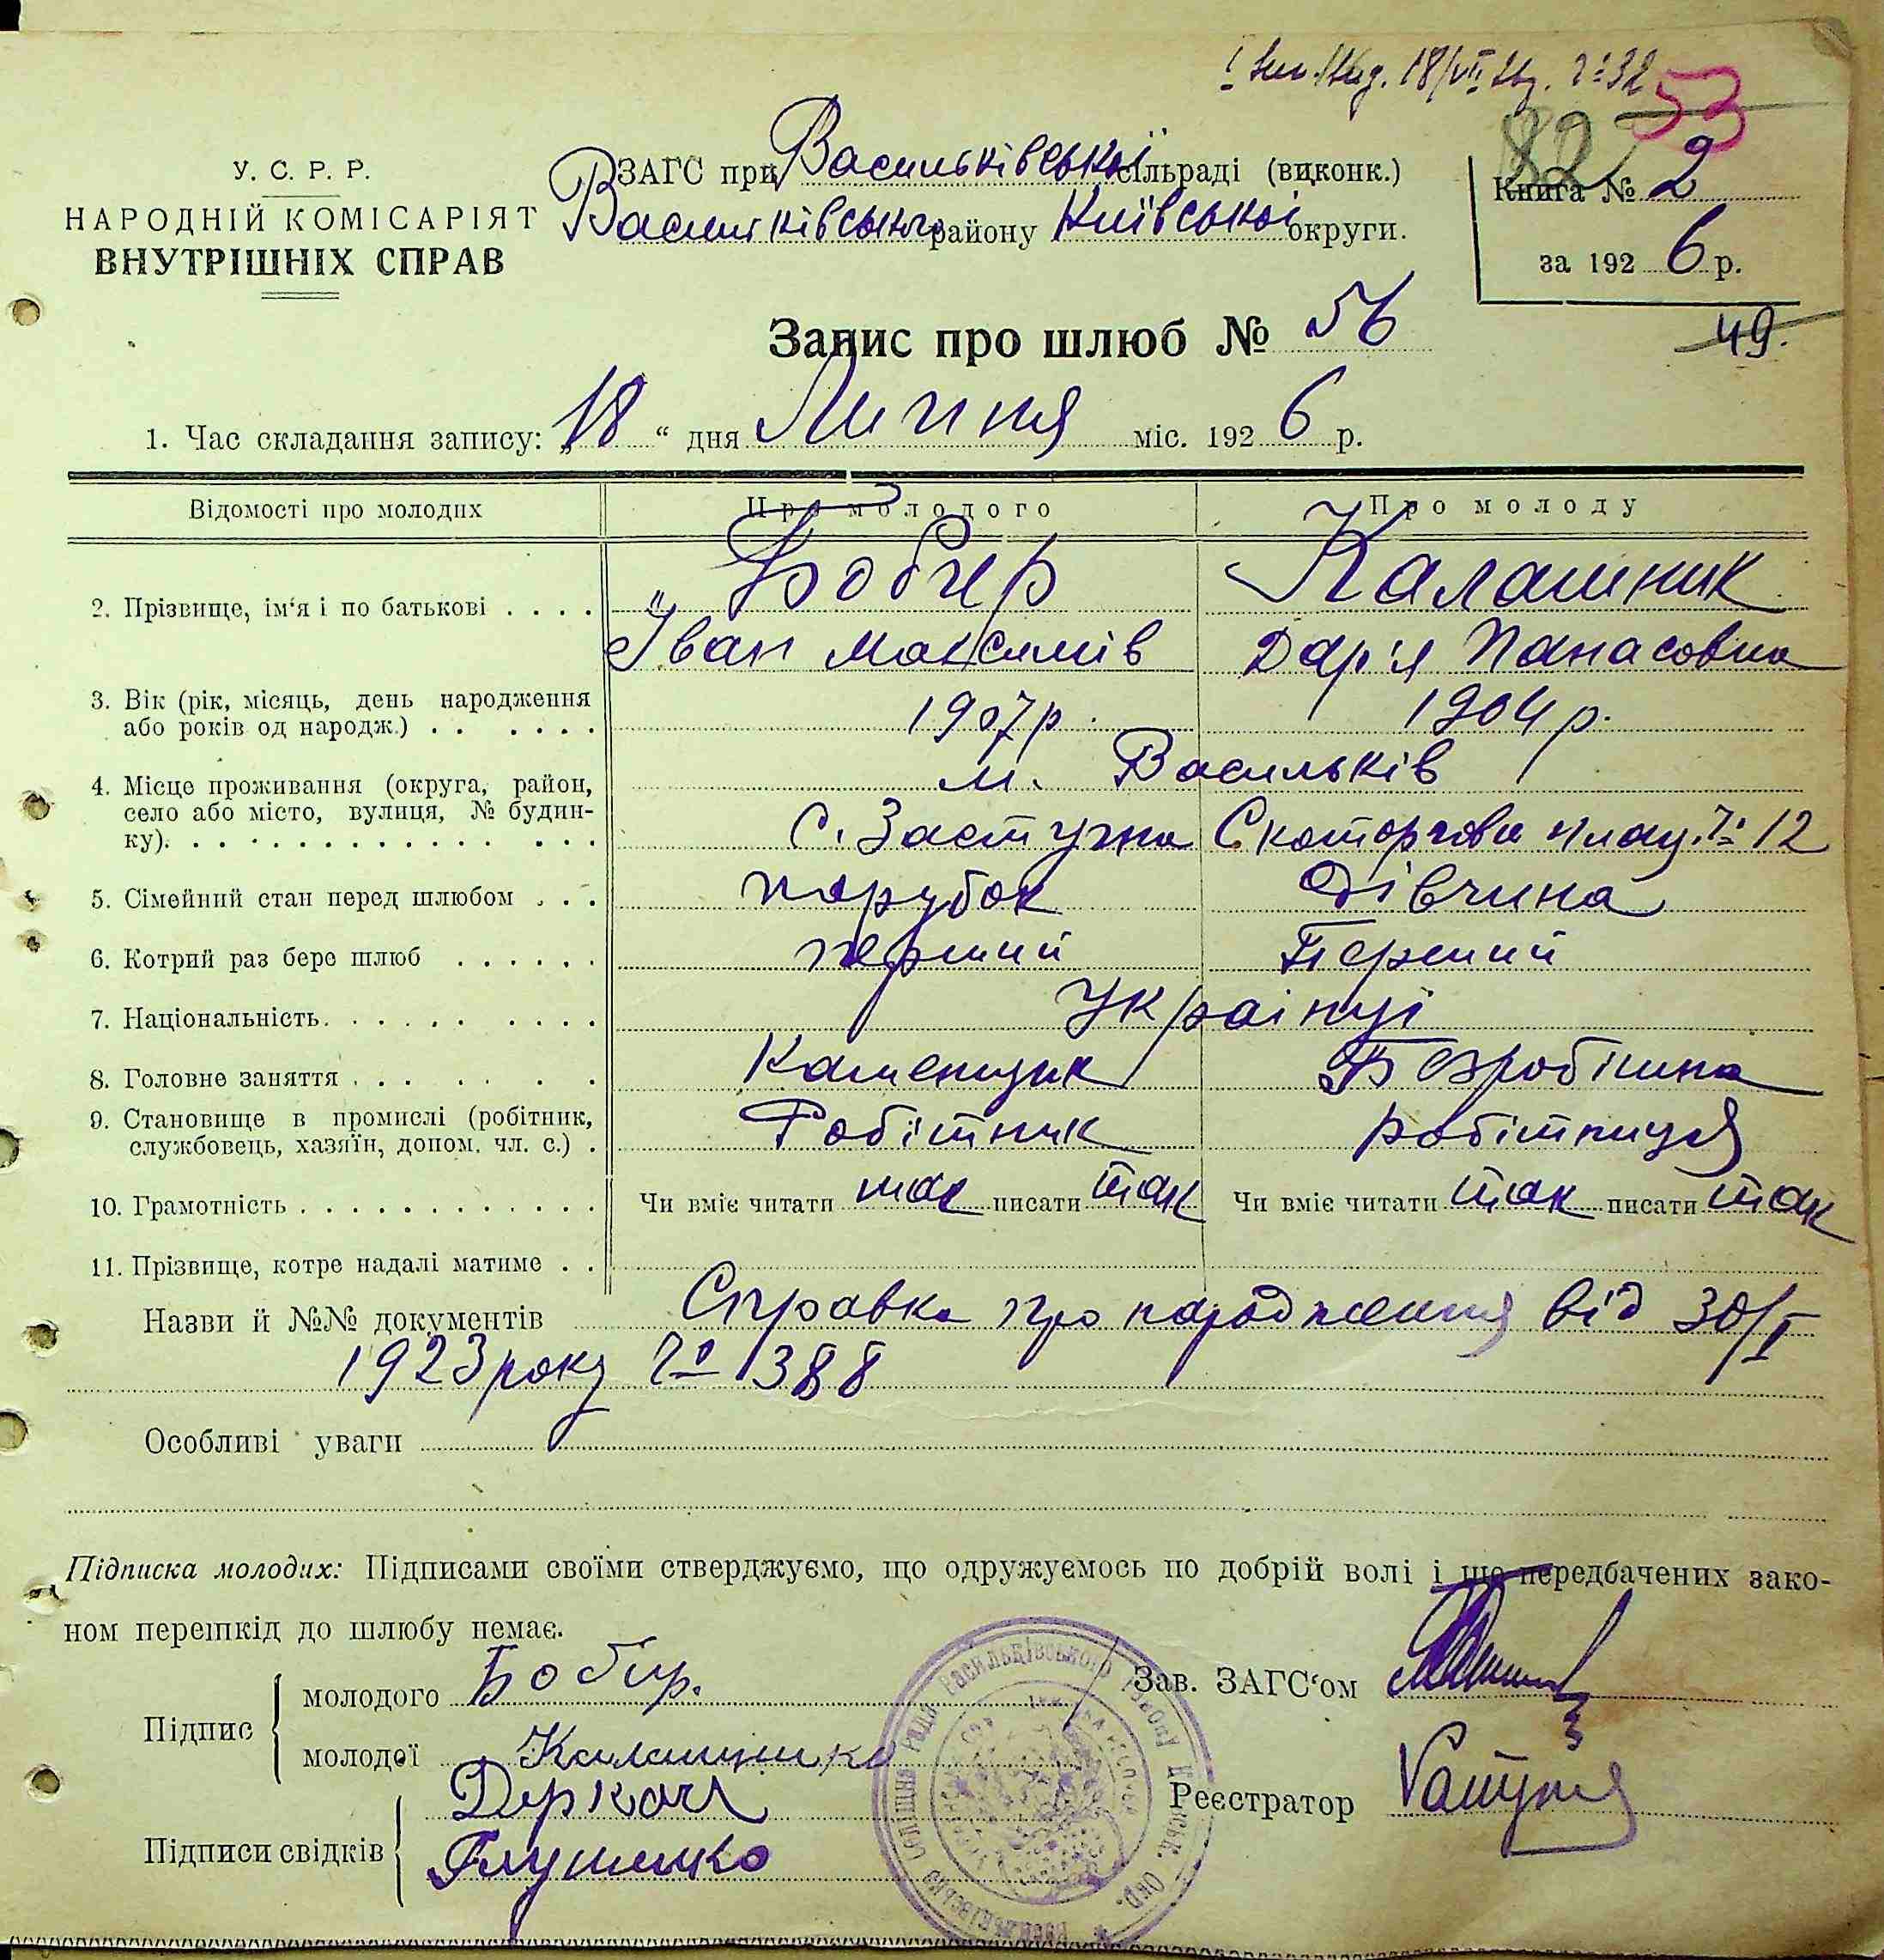 53
82
У. С. Р. Р.
НАРОДНІЙ КОМІСАРІЯТ
ВНУТРІШНІХ СПРАВ
ЗАГС при Васильківській сільраді (виконк.)
Васильківського району Київської округи.
Книга № 2
за 1926 р.
49.
Запис про шлюб № 56
1. Час складання запису: „18“ дня Липня міс. 1926 р.
Відомості про молодих Про молодого Про молоду
2. Прізвище, ім‘я і по батькові . . . . Бобир Калашник
Іван Максимів Дар'я Панасовна
3. Вік (рік, місяць, день народження
або років од народж.) 1907 р. 1904 р.
4. Місце проживання (округа, район, м. Васильків
село або місто, вулиця, № будин-
ку). С. Застугна Скоторгова площ. № 12
5. Сімейний стан перед шлюбом . . . парубок Дівчина
6. Котрий раз бере шлюб перший Перший
7. Національність. Українці
8. Головне заняття Каменщик Безробітна
9. Становище в промислі (робітник,
службовець, хазяїн, допом. чл. с.) . Робітник робітниця
10. Грамотність Чи вміє читати так писати так Чи вміє читати так писати так
11. Прізвище, котре надалі матиме . .
Назви й №№ документів Справка про народження від 30/I
1923 року № 388
Особливі уваги
Підписка молодих: Підписами своїми стверджуємо, що одружуємось по добрій волі і що передбачених зако-
ном перешкід до шлюбу немає.
Підпис
молодого Бобир.
молодої Калашник
Зав. ЗАГС‘ом
Підписи свідків
Деркач
Глущенко
Реєстратор